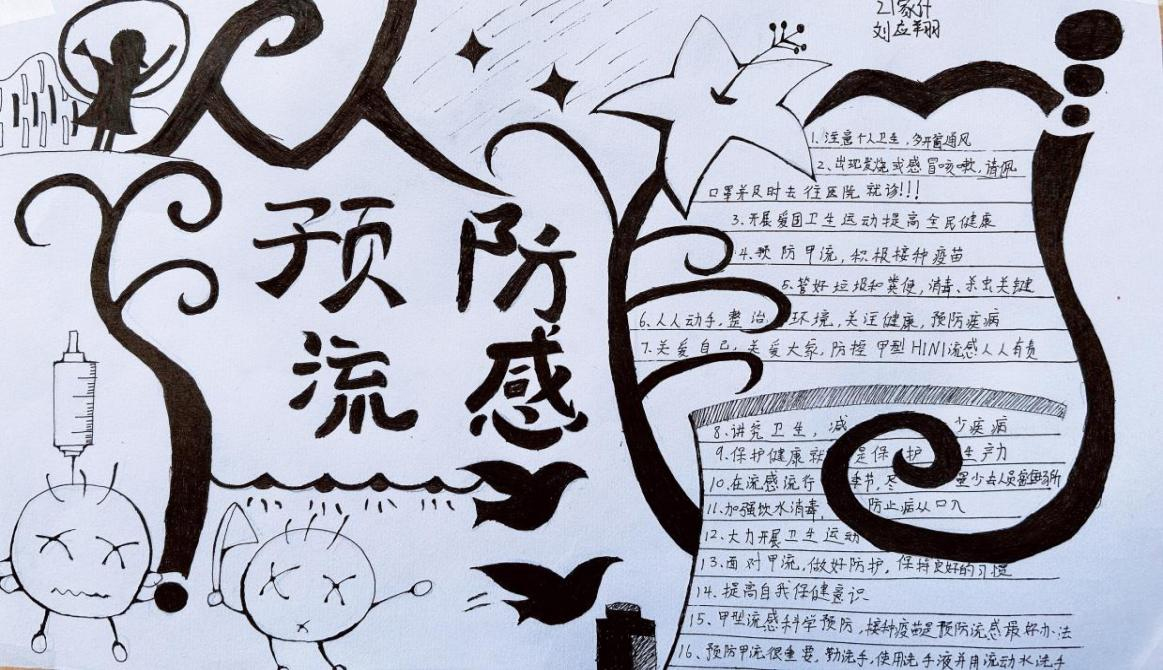 刘应翔
人人
预防
流感
1.注意个人卫生,多开窗通风
2.出现发烧或感冒咳嗽,请佩
口罩并及时去往医院就诊!!!
3.开展爱国卫生运动提高全民健康
4.预防甲流,积极接种疫苗
5.管好垃圾和粪便,消毒、杀虫关键
6、人人动手,整治环境,关注健康,预防疾病
7.关爱自己,关爱大家,防控甲型H1N1流感人人有责
8.讲究卫生,减少疾病
9.保护健康就是保护生产力
10.在流感流行季节,尽量少去人员密集场所
11.加强饮水消毒,防止病从口入
12.大力开展卫生运动
13.面对甲流,做好防护,保持良好的习惯
14.提高自我保健意识
15、甲型流感科学预防,接种疫苗是预防流感最好办法
16、预防甲流很重要,勤洗手,使用洗手液并用流动水洗手